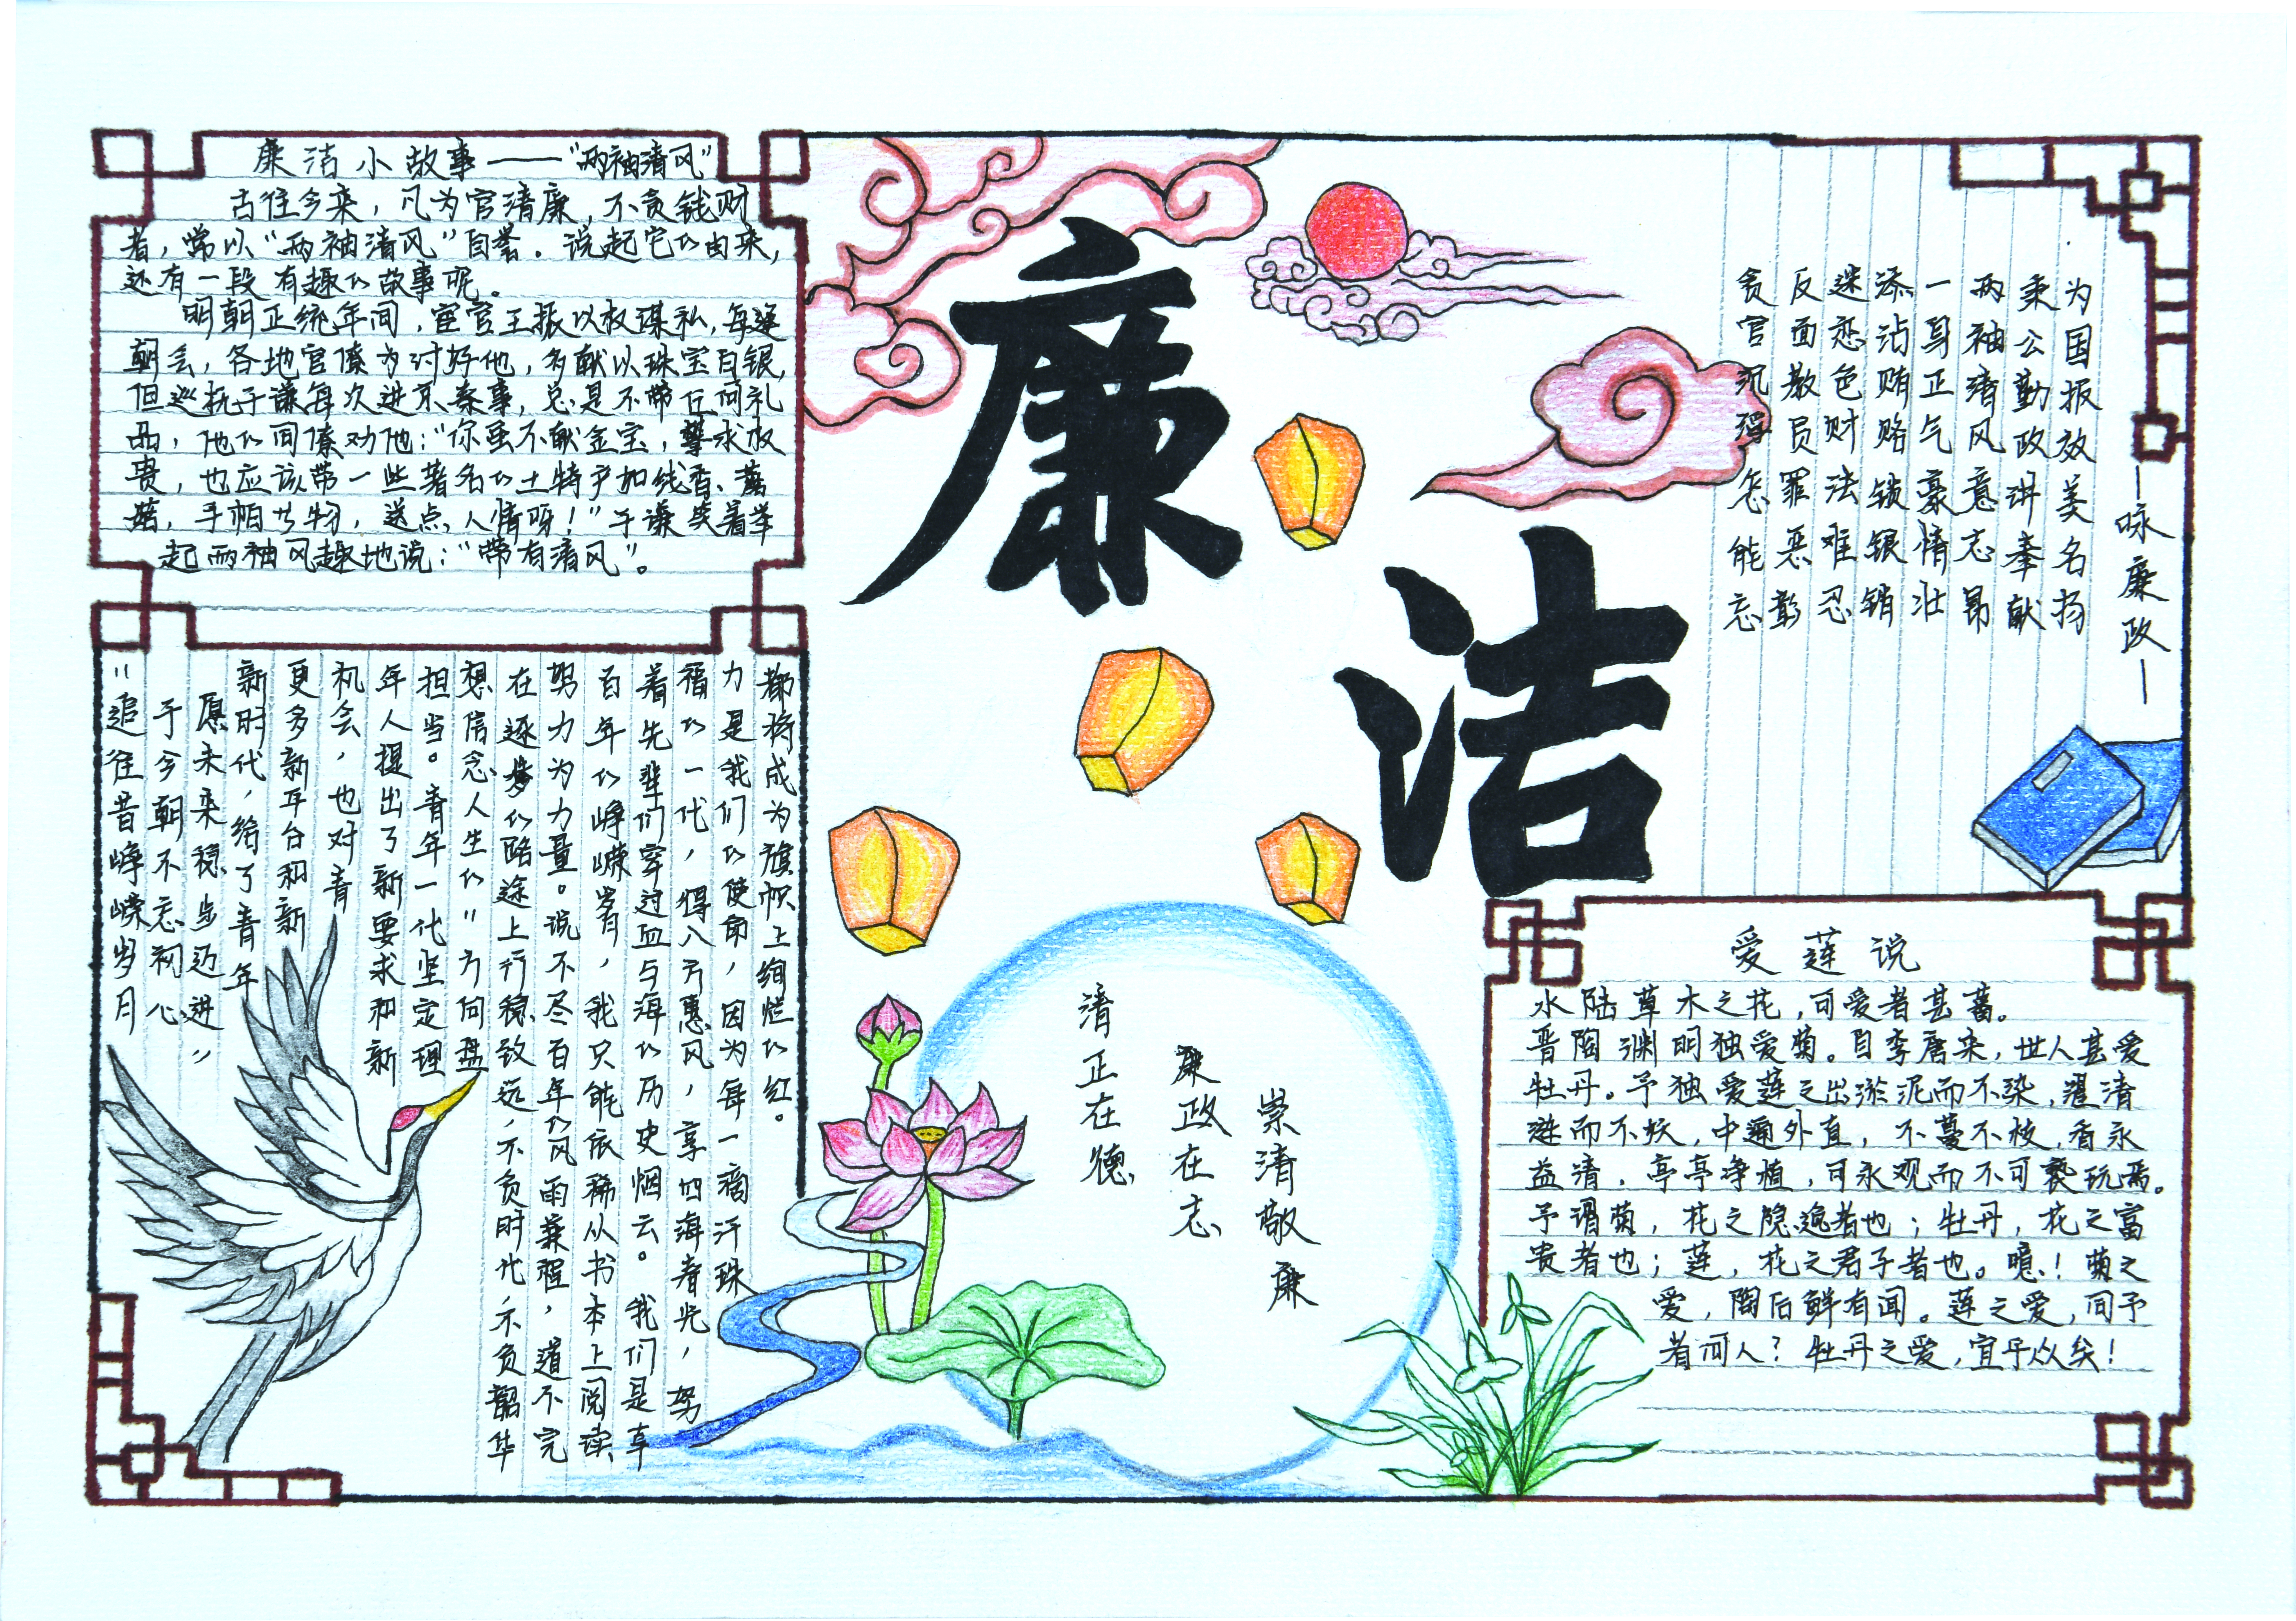 廉洁小故事——“两袖清风”
古往今来，凡为官清廉，不贪钱财
者，常以“两袖清风”自誉。说起它的由来，
还有一段有趣的故事呢。
明朝正统年间，宦官王振以权谋私，每逢
朝会，各地官僚为讨好他，多献以珠宝白银，
但巡抚于谦每次进京奏事，总是不带任何礼
品，他的同僚劝他：“你虽不献金宝，攀求权
贵，也应该带一些著名的土特产如线香、蘑
菇，手帕等物，送点人情呀！”于谦笑着举
起两袖风趣地说：“带有清风”。
廉
洁
——咏廉政——
为国报效美名扬
秉公勤政讲奉献
两袖清风意志昂
一身正气豪情壮
添沾贿赂锁银销
迷恋色财法难忍
反面教员罪恶彰
贪官沉怎能忘
“追往昔峥嵘岁月
于今朝不忘初心
愿未来稳步迈进”
新时代，给了青年
更多新平台和新
机会，也对青
年人提出了新要求和新
担当。青年一代坚定理
想信念人生的”方向盘
在逐梦的路途上行稳致远，不负时代，不负韶华
努力为力量。说不尽百年的风雨兼程，道不完
百年的峥嵘岁月，我只能依稀从书本上阅读
着先辈们穿过血与海的历史烟云。我们是享
福的一代，得八方惠风，享四海春光，努
力是我们的使命，因为每一滴汗珠
都将成为旗帜上绚烂的红。
崇清敬廉
廉政在志
清正在德
爱莲说
水陆草木之花，可爱者甚蕃。
晋陶渊明独爱菊。自李唐来，世人甚爱
牡丹。予独爱莲之出淤泥而不染，濯清
涟而不妖，中通外直，不蔓不枝，香永
益清，亭亭净植，可永观而不可亵玩焉。
予谓菊，花之隐逸者也；牡丹，花之富
贵者也；莲，花之君子者也。噫！菊之
爱，陶后鲜有闻。莲之爱，同予
者何人？牡丹之爱，宜乎众矣！